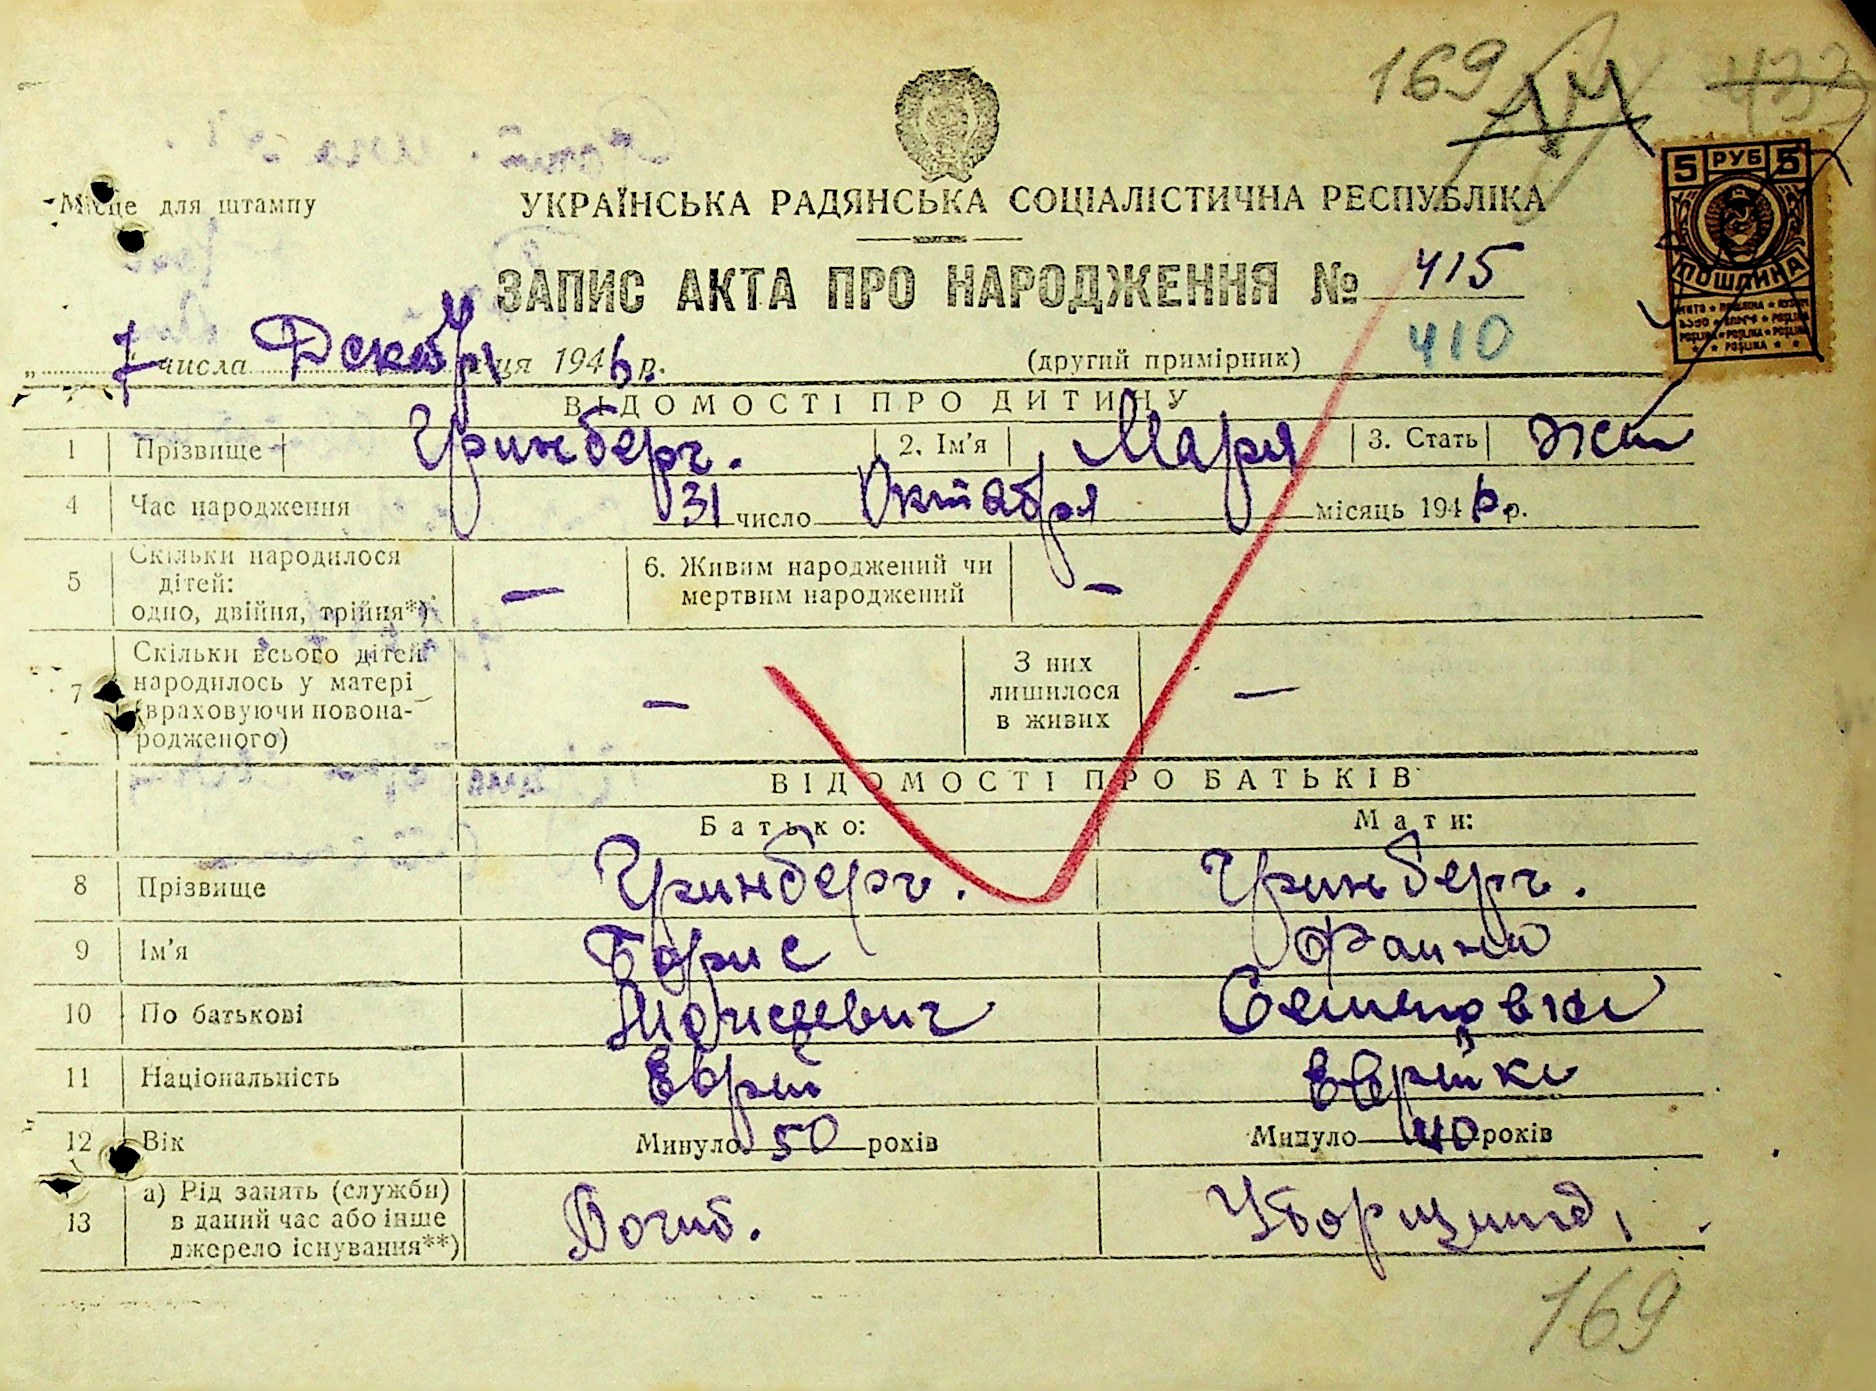 169
433
5 РУБ 5
ПОШЛИНА
Місце для штампу
УКРАЇНСЬКА РАДЯНСЬКА СОЦІАЛІСТИЧНА РЕСПУБЛІКА
ЗАПИС АКТА ПРО НАРОДЖЕННЯ № 415
„ 7 числа Декабр ця 1946 р. (другий примірник) 410
ВІДОМОСТІ ПРО ДИТИНУ
1 Прізвище Гринберг. 2. Ім'я Мария 3. Стать жен
4 Час народження 31 число Октября місяць 1946 р.
5 Скільки народилося дітей: одно, двійня, трійня*) — 6. Живим народжений чи мертвим народжений —
7 Скільки всього дітей народилось у матері (враховуючи новонародженого) — З них лишилося в живих —
ВІДОМОСТІ ПРО БАТЬКІВ
Батько: Мати:
8 Прізвище Гринберг. Гринберг.
9 Ім'я Борис Фаина
10 По батькові Моисеевич Семеновна
11 Національність Еврей Еврейка
12 Вік Минуло 50 років Минуло 40 років
13 а) Рід занять (служби) в даний час або інше джерело існування**) Погиб. Уборщица,
169